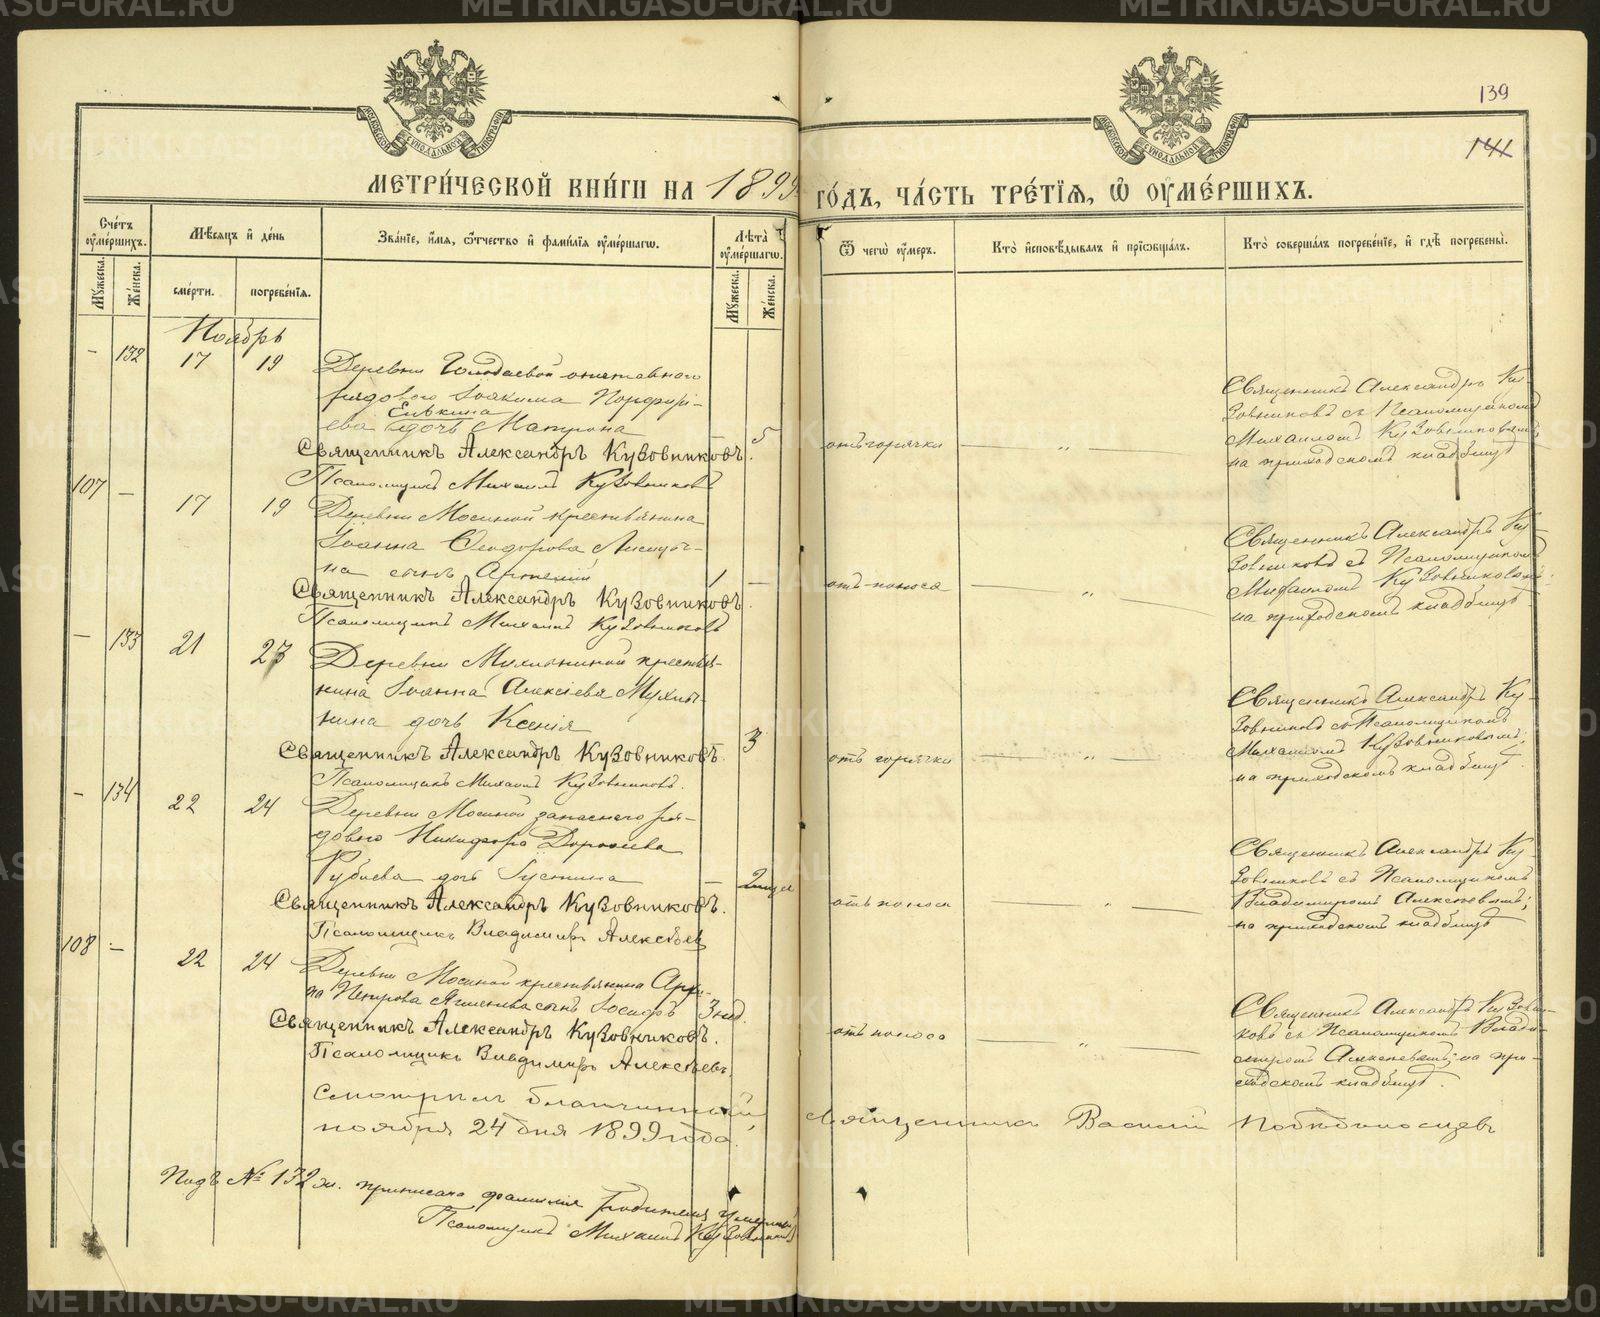 METRIKI.GASO-URAL.RU
139
141
МЕТРИ́ЧЕСКОЙ КНИ́ГИ НА 1899 ГО́ДЪ, ЧА́СТЬ ТРЕ́ТІѦ, Ѽ ОУМЕ́РШИХЪ.
Сче́тъ оуме́ршихъ.
Мꙋжеска.
Же́нска.
Мѣ́сѧцъ и де́нь
сме́рти.
погребе́нїѧ.
Зва́нїе, и́мѧ, ѻ́тчество и фами́лїѧ оуме́ршагѡ.
Лѣта̀ оуме́ршагѡ.
Мꙋжеска.
Же́нска.
Ѿ чегѡ̀ оу́меръ.
Кто̀ и́сповѣ́дывалъ и прїѡбща́лъ.
Кто̀ соверша́лъ погребе́нїе, и гдѣ̀ погребены̀.
Ноябрь
- 132 17 19
Деревни
рядового Іоакима Порфирі-
Елькина
ева дочь Матрона
- 5
отъ горячки
Священникъ Александръ Кузовниковъ.
Псаломщикъ Михаилъ Кузовниковъ
Священникъ Александръ Ку-
зовниковъ съ Псаломщикомъ
Михаиломъ Кузовниковымъ;
на приходскомъ кладбищѣ
107 - 17 19
Деревни Мосиной крестьянина
Іоанна Ѳеодорова Лисицы-
на сынъ Артемій
1 -
отъ поноса
Священникъ Александръ Кузовниковъ.
Псаломщикъ Михаилъ Кузовниковъ
Священникъ Александръ Ку-
зовниковъ съ Псаломщикомъ
Михаиломъ Кузовниковымъ;
на приходскомъ кладбищѣ
- 133 21 23
Деревни Мухлыниной крестья-
нина Іоанна Алексіева Мухлы-
нина дочь Ксенія
3
отъ горячки
Священникъ Александръ Кузовниковъ.
Псаломщикъ Михаилъ Кузовниковъ.
Священникъ Александръ Ку-
зовниковъ съ Псаломщикомъ
Михаиломъ Кузовниковымъ;
на приходскомъ кладбищѣ.
- 134 22 24
Деревни Мосиной запаснаго ря-
дового Никифора Дороѳеева
Рубцева дочь Іустина
-
отъ поноса
Священникъ Александръ Кузовниковъ.
Псаломщикъ Владимиръ Алексѣев
Священникъ Александръ Ку-
зовниковъ съ Псаломщикомъ
Владимиромъ Алексѣевымъ;
на приходскомъ кладбищѣ
108 - 22 24
Деревни Мосиной крестьянина
Петрова сынъ Іосифъ 3 нед.
отъ поноса
Священникъ Александръ Кузовниковъ.
Псаломщикъ Владимиръ Алексѣевъ.
Священникъ Александръ Кузовни-
ковъ съ Псаломщикомъ Влади-
миромъ Алексѣевымъ; на при-
ходскомъ кладбищѣ.
смотрѣлъ благочинный, Священникъ Василій Побѣдоносцевъ
ноября 24 дня 1899 года.
Подъ № 132 ж. приписана фамилія родителя умершей
Псаломщикъ Михаилъ Кузовниковъ